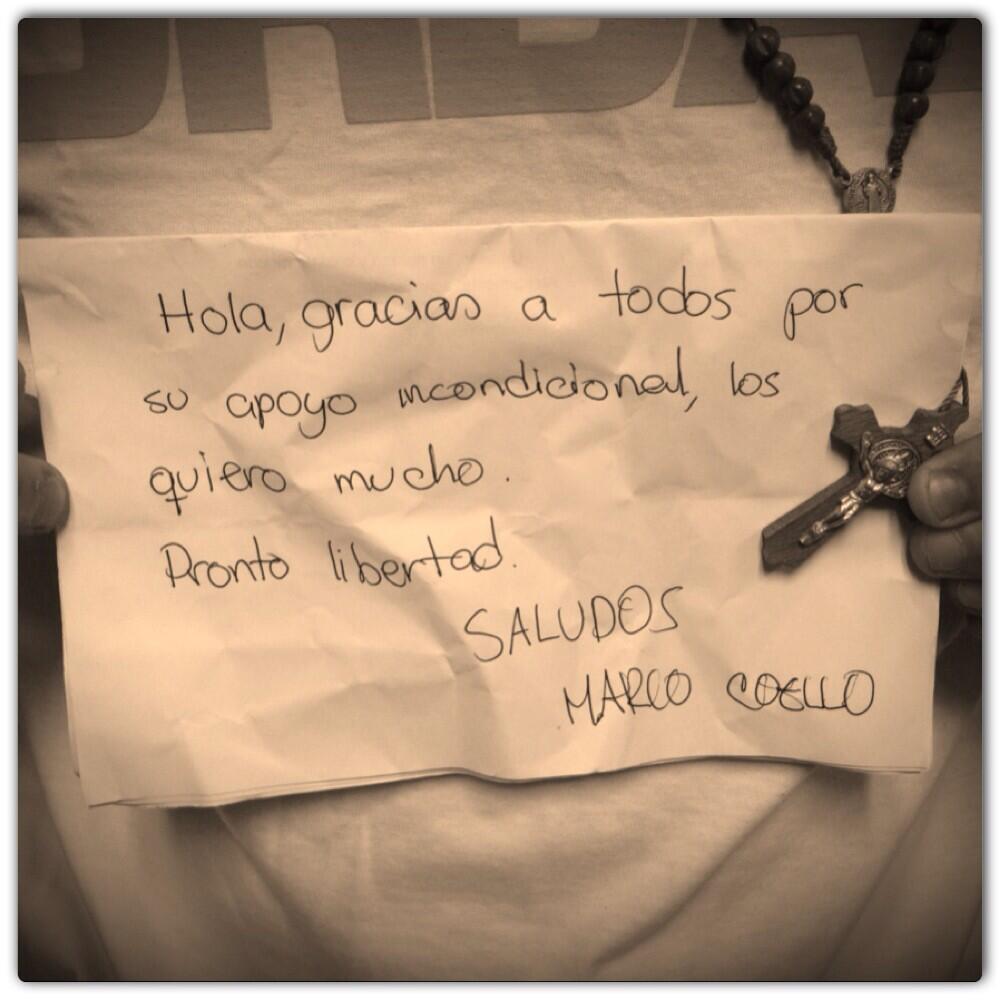 Hola, gracias a todos por
su apoyo incondicional, los
quiero mucho.
Pronto libertad.
SALUDOS
MARCO COELLO